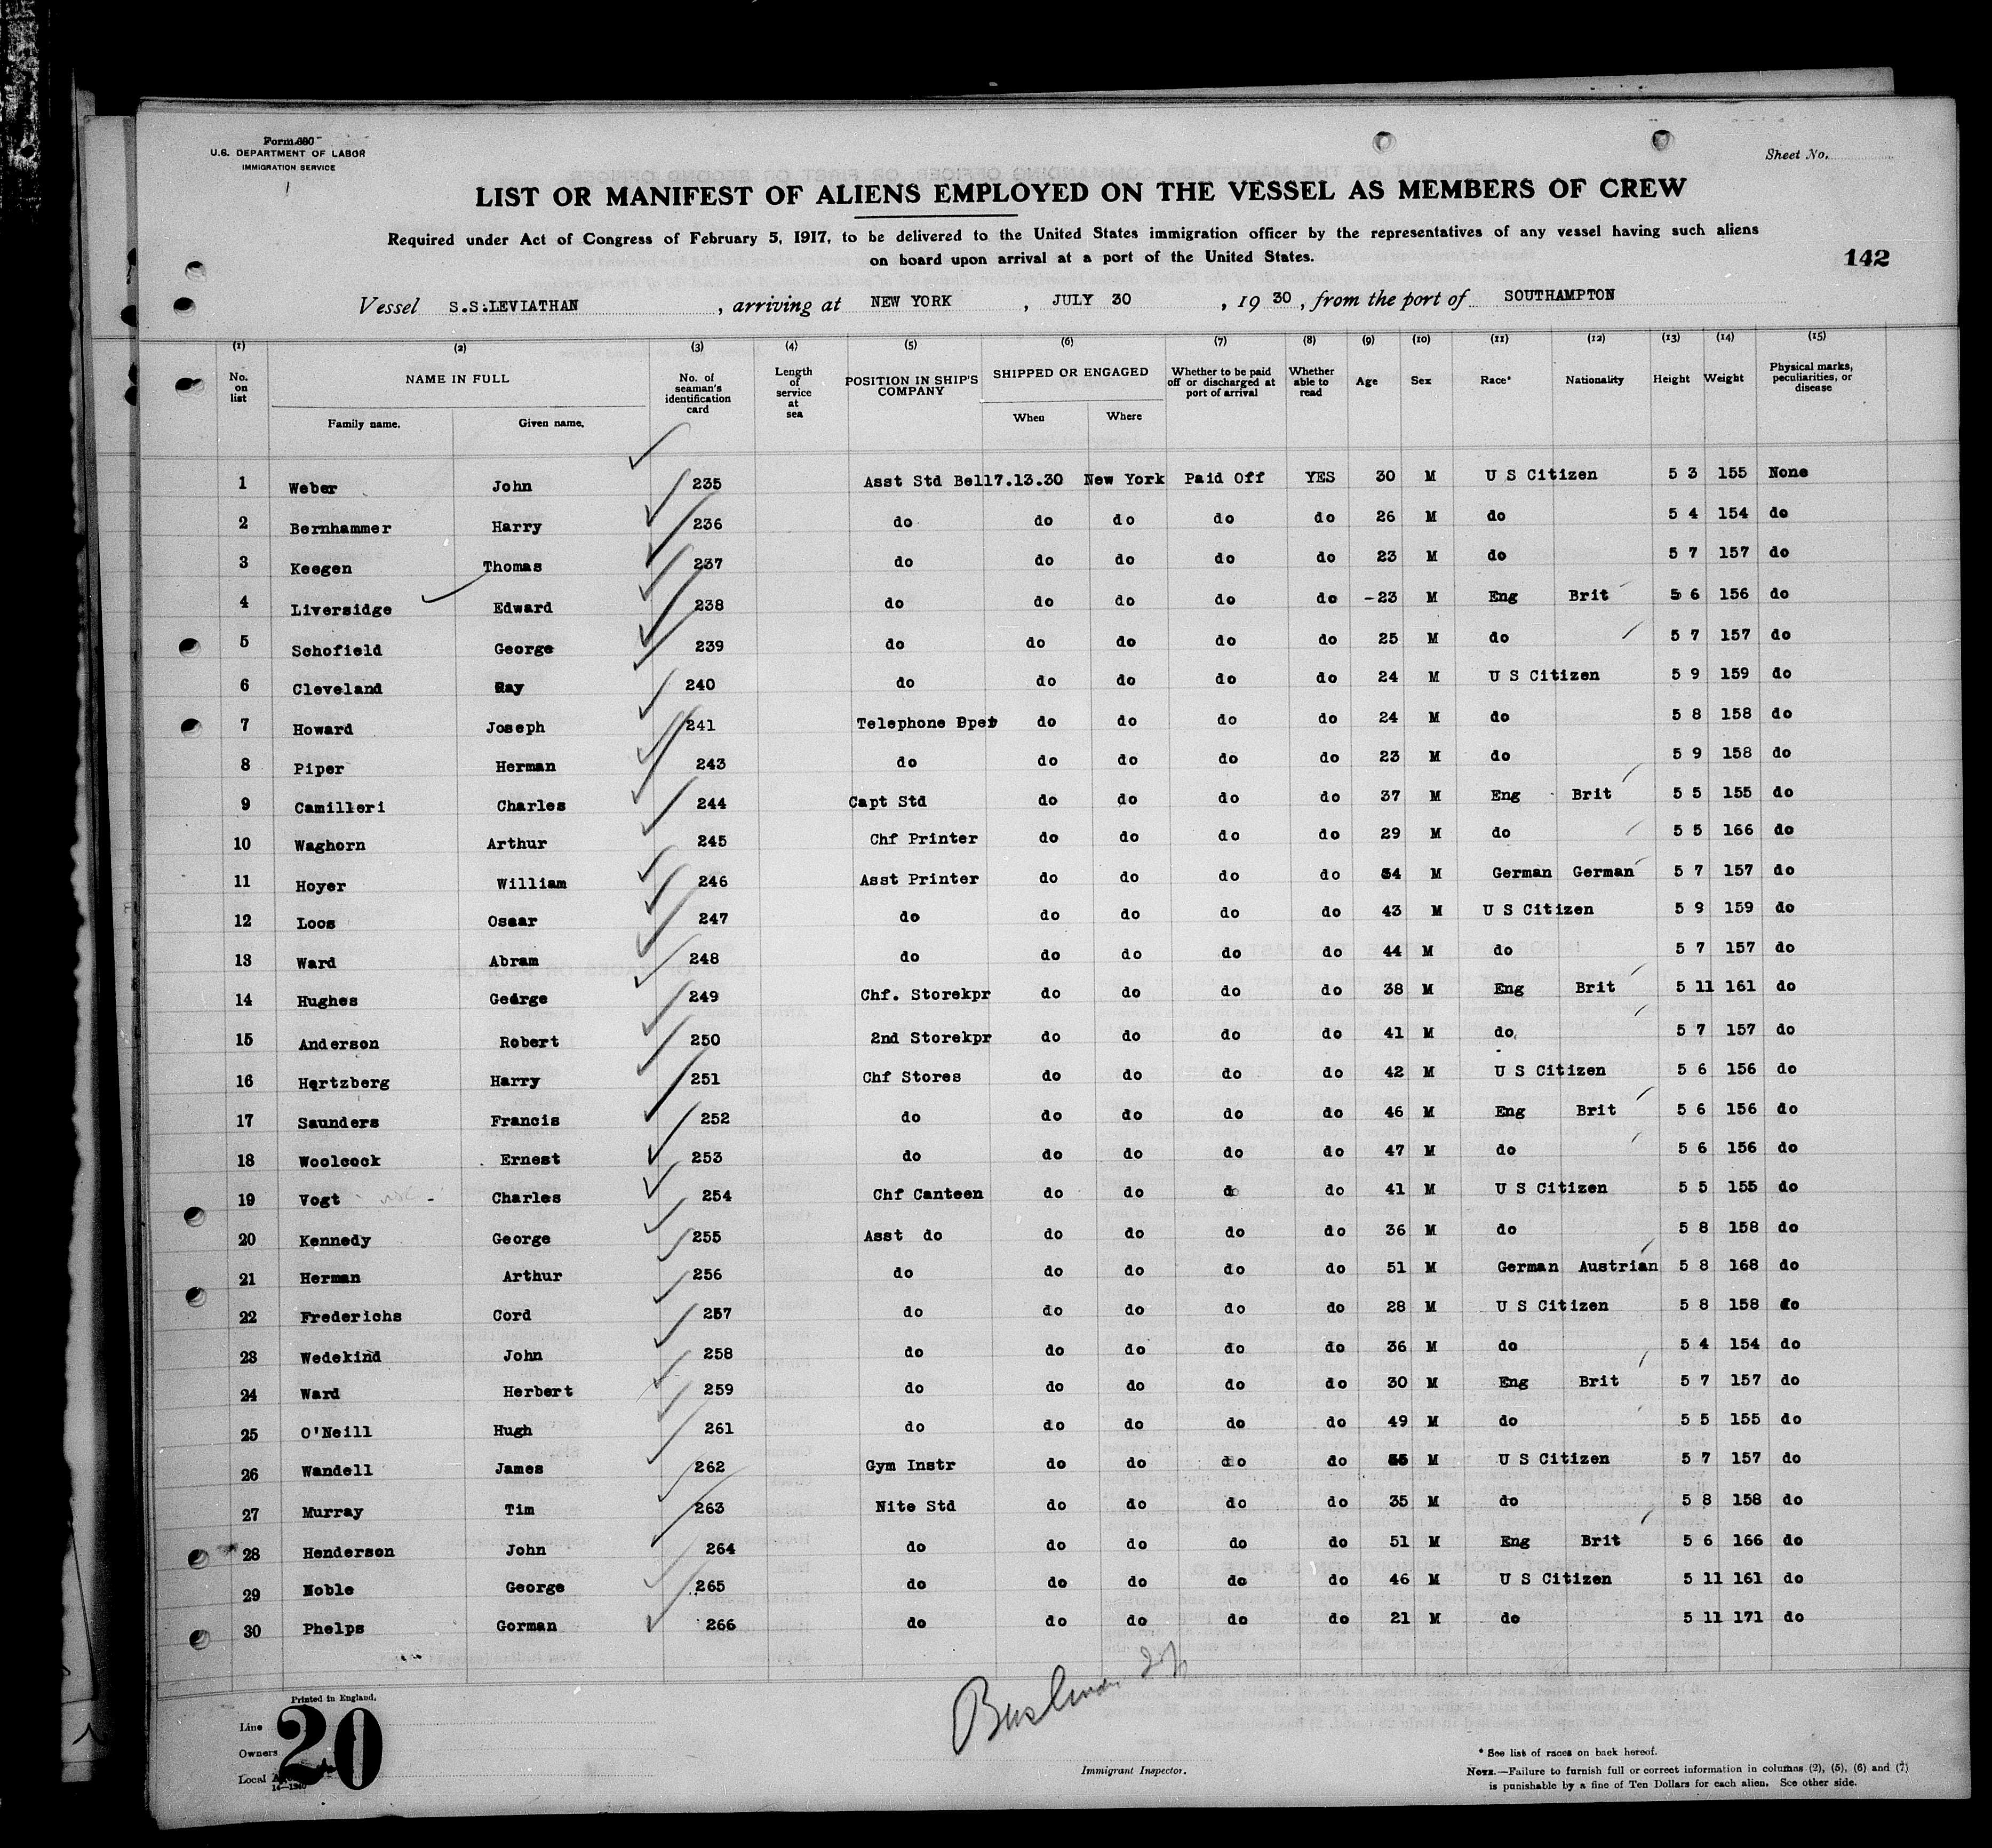 Form 680
U.S. DEPARTMENT OF LABOR
IMMIGRATION SERVICE
Sheet No.
LIST OR MANIFEST OF ALIENS EMPLOYED ON THE VESSEL AS MEMBERS OF CREW
Required under Act of Congress of February 5, 1917, to be delivered to the United States immigration officer by the representatives of any vessel having such aliens
on board upon arrival at a port of the United States.
142
Vessel S.S.LEVIATHAN, arriving at NEW YORK, JULY 30, 19 30, from the port of SOUTHAMPTON
(1) (2) (3) (4) (5) (6) (7) (8) (9) (10) (11) (12) (13) (14) (15)
No. on list NAME IN FULL No. of seaman's identification card Length of service at sea POSITION IN SHIP'S COMPANY SHIPPED OR ENGAGED Whether to be paid off or discharged at port of arrival Whether able to read Age Sex Race* Nationality Height Weight Physical marks, peculiarities, or disease
Family name. Given name. When Where
1 Weber John 235 Asst Std Bell 7.13.30 New York Paid Off YES 30 M U S Citizen 5 3 155 None
2 Bernhammer Harry 236 do do do do do 26 M do 5 4 154 do
3 Keegen Thomas 237 do do do do do 23 M do 5 7 157 do
4 Liversidge Edward 238 do do do do do -23 M Eng Brit 5 6 156 do
5 Schofield George 239 do do do do do 25 M do 5 7 157 do
6 Cleveland Ray 240 do do do do do 24 M U S Citizen 5 9 159 do
7 Howard Joseph 241 Telephone Oper do do do do 24 M do 5 8 158 do
8 Piper Herman 243 do do do do do 23 M do 5 9 158 do
9 Camilleri Charles 244 Capt Std do do do do 37 M Eng Brit 5 5 155 do
10 Waghorn Arthur 245 Chf Printer do do do do 29 M do 5 5 166 do
11 Hoyer William 246 Asst Printer do do do do 54 M German German 5 7 157 do
12 Loos Oscar 247 do do do do do 43 M U S Citizen 5 9 159 do
13 Ward Abram 248 do do do do do 44 M do 5 7 157 do
14 Hughes George 249 Chf. Storekpr do do do do 38 M Eng Brit 5 11 161 do
15 Anderson Robert 250 2nd Storekpr do do do do 41 M do 5 7 157 do
16 Hertzberg Harry 251 Chf Stores do do do do 42 M U S Citizen 5 6 156 do
17 Saunders Francis 252 do do do do do 46 M Eng Brit 5 6 156 do
18 Woolcock Ernest 253 do do do do do 47 M do 5 6 156 do
19 Vogt Charles 254 Chf Canteen do do do do 41 M U S Citizen 5 5 155 do
20 Kennedy George 255 Asst do do do do do 36 M do 5 8 158 do
21 Herman Arthur 256 do do do do do 51 M German Austrian 5 8 168 do
22 Frederichs Cord 257 do do do do do 28 M U S Citizen 5 8 158 do
23 Wedekind John 258 do do do do do 36 M do 5 4 154 do
24 Ward Herbert 259 do do do do do 30 M Eng Brit 5 7 157 do
25 O'Neill Hugh 261 do do do do do 49 M do 5 5 155 do
26 Wandell James 262 Gym Instr do do do do M U S Citizen 5 7 157 do
27 Murray Tim 263 Nite Std do do do do 35 M do 5 8 158 do
28 Henderson John 264 do do do do do 51 M Eng Brit 5 6 166 do
29 Noble George 265 do do do do do 46 M U S Citizen 5 11 161 do
30 Phelps Gorman 266 do do do do do 21 M do 5 11 171 do
Printed in England.
Line
Owners
Local
20
14—1240
Immigrant Inspector.
* See list of races on back hereof.
NOTE.—Failure to furnish full or correct information in columns (2), (5), (6) and (7)
is punishable by a fine of Ten Dollars for each alien. See other side.